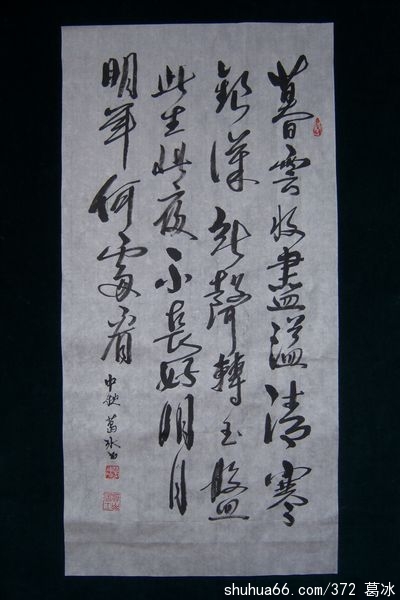 暮雲收盡溢清寒
銀漢無聲轉玉盤
此生此夜不長好明月
明年何處看
中秋 葛冰书
shuhua66.com/372 葛冰